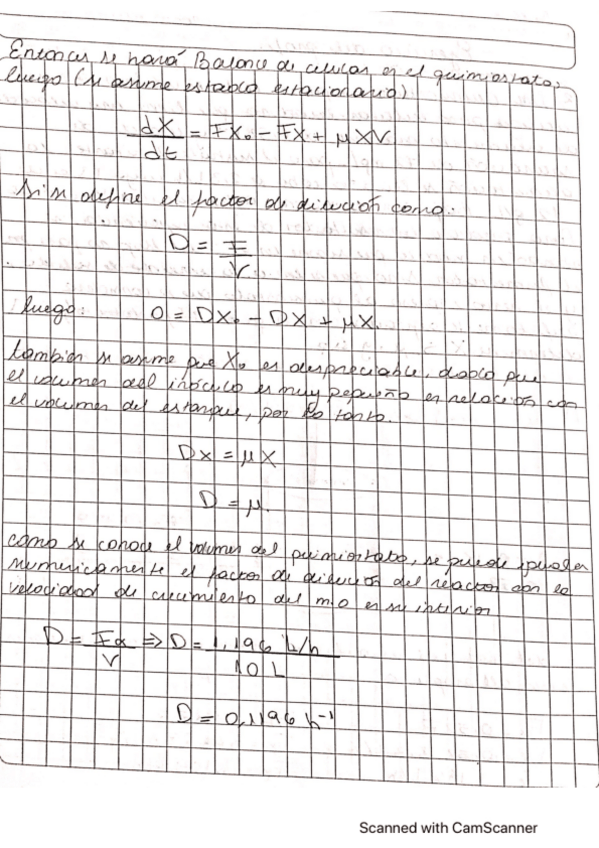 Entonces se hará Balance de celulas en el quimiostato,
luego (se asume estado estacionario)
dX/dt = FX₀ - FX + μXV
Si se define el factor de dilución como:
D = F/V
luego: 0 = DX₀ - DX + μX.
también se asume que X₀ es despreciable, dado que
el volumen del inóculo es muy pequeño en relación con
el volumen del estanque, por lo tanto.
DX = μX
D = μ.
como se conoce el volumen del quimiostato, se puede igualar
numericamente el factor de dilución del reactor con la
velocidad de crecimiento del m.o en su interior
D = Fα/V ⇒ D = 1,196 L/h / 10 L
D = 0,1196 h⁻¹
Scanned with CamScanner